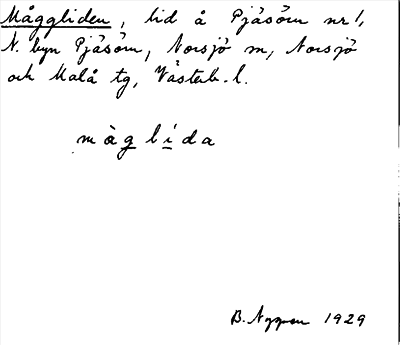 Måggliden, lid å Pjäsörn nr 1,
N. byn Pjäsörn, Norsjö sn, Norsjö
och Malå tg, Västerb. l.
måg lída
B. Nyman 1929